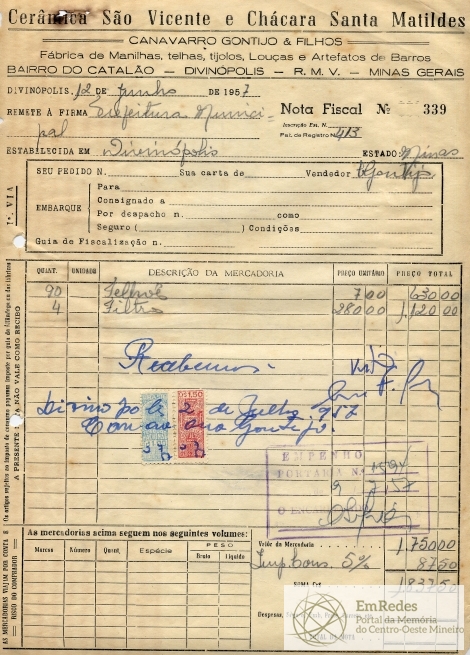 Cerâmica São Vicente e Chácara Santa Matildes
CANAVARRO GONTIJO & FILHOS
Fábrica de Manilhas, telhas, tijolos, Louças e Artefatos de Barros
BAIRRO DO CATALÃO — DIVINÓPOLIS — R. M. V. — MINAS GERAIS
DIVINÓPOLIS, 12 DE Junho DE 1957
REMETE À FIRMA Prefeitura Munici-
pal
Nota Fiscal Nº 339
Inscrição Est. N.
Pat. de Registro N. 413
ESTABELECIDA EM Divinópolis ESTADO Minas
1ª. VIA
SEU PEDIDO N. Sua carta de Vendedor
EMBARQUE
Para
Consignado a
Por despacho n. como
Seguro ( ) Condições
Guia de Fiscalização n.
QUANT. UNIDADE DESCRIÇÃO DA MERCADORIA PREÇO UNITÁRIO PREÇO TOTAL
90 7,00 630,00
4 Filtro 280,00 1.120,00
Recebemos
Divinópolis 2 de Julho 957
Canavarro Gontijo
1,50
EMPENHO
PORTARIA N.
9 7 57
A PRESENTE NÃO VALE COMO RECIBO
AS MERCADORIAS VIAJAM POR CONTA E RISCO DO COMPRADOR
As mercadorias acima seguem nos seguintes volumes:
Marcas Número Quant. Espécie PESO
Bruto Líquido
Valor da Mercadoria 1.750,00
Imp. Cons. 5% 87,50
SOMA Cr$ 1.837,50
Despesas,
TOTAL DA NOTA
EmRedes
Portal da Memória
do Centro-Oeste Mineiro